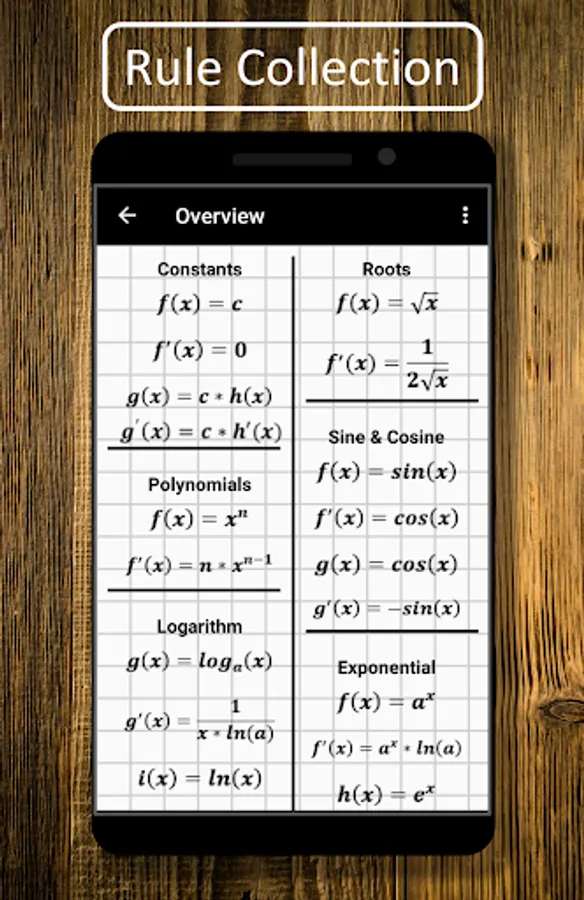 Rule Collection
Overview
Constants
f(x) = c
f'(x) = 0
g(x) = c * h(x)
g'(x) = c * h'(x)
Polynomials
f(x) = xⁿ
f'(x) = n * xⁿ⁻¹
Logarithm
g(x) = logₐ(x)
g'(x) = 1 / (x * ln(a))
i(x) = ln(x)
Roots
f(x) = √x
f'(x) = 1 / (2√x)
Sine & Cosine
f(x) = sin(x)
f'(x) = cos(x)
g(x) = cos(x)
g'(x) = -sin(x)
Exponential
f(x) = aˣ
f'(x) = aˣ * ln(a)
h(x) = eˣ